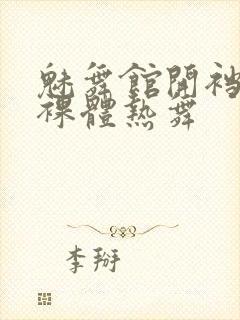 魅舞館開襠
裸體熱舞
李掰